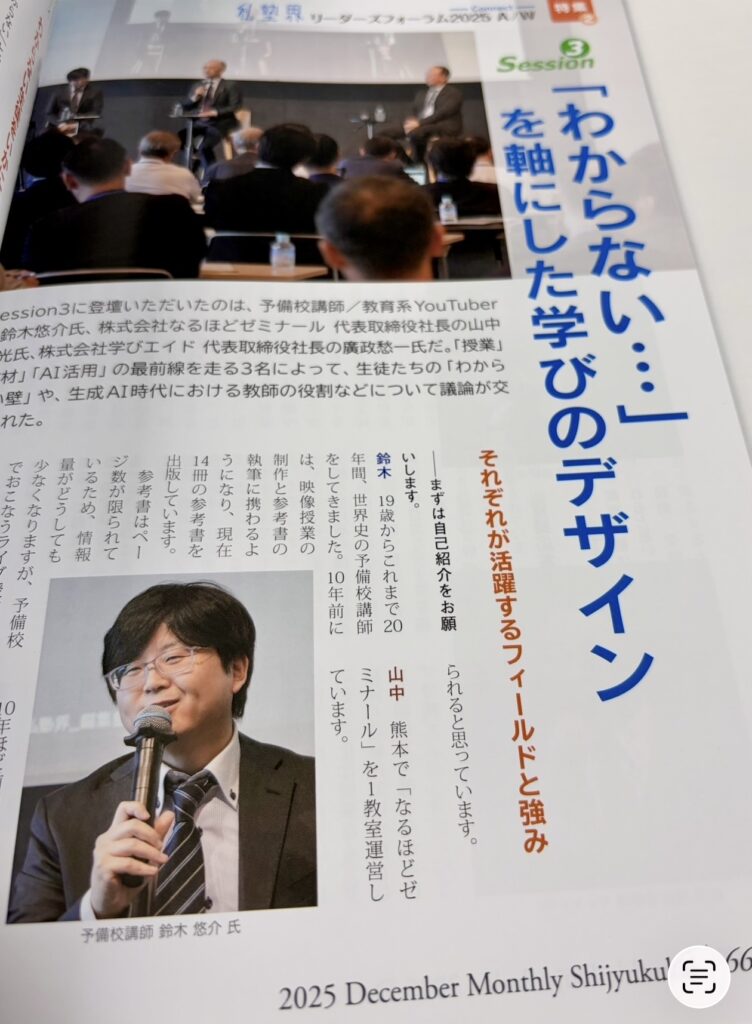 私塾界 リーダーズフォーラム2025 A/W
Connect
特集
2
Session 3
「わからない…」
を軸にした学びのデザイン
ession3に登壇いただいたのは、予備校講師／教育系YouTuber
鈴木悠介氏、株式会社なるほどゼミナール 代表取締役社長の山中
光氏、株式会社学びエイド 代表取締役社長の廣政愁一氏だ。「授業」
材」「AI活用」の最前線を走る3名によって、生徒たちの「わから
い壁」や、生成AI時代における教師の役割などについて議論が交
れた。
それぞれが活躍するフィールドと強み
――まずは自己紹介をお願
いします。
鈴木 19歳からこれまで20
年間、世界史の予備校講師
をしてきました。10年前に
は、映像授業の
制作と参考書の
執筆に携わるよ
うになり、現在
14冊の参考書を
出版しています。
参考書はペー
ジ数が限られて
いるため、情報
量がどうしても
少なくなりますが、予備校
でおこなうライブ
られると思っています。
山中 熊本で「なるほどゼ
ミナール」を1教室運営し
ています。
10年ほど
予備校講師 鈴木 悠介 氏
2025 December Monthly Shijyukukai 66